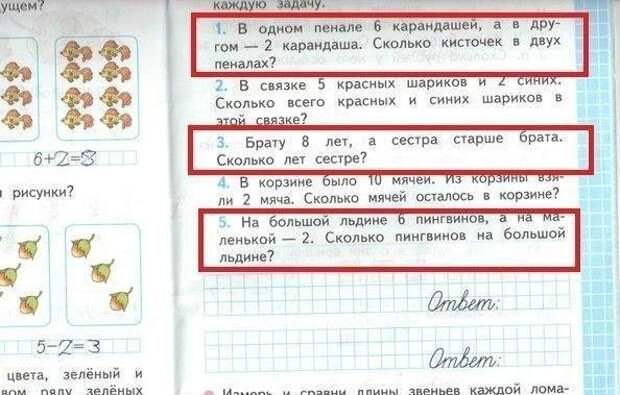 ущем?
6+2=8
рисунки?
5-2=3
цвета, зелёный и
вом ряду зелёных
каждую задачу.
1. В одном пенале 6 карандашей, а в дру-
гом — 2 карандаша. Сколько кисточек в двух
пеналах?
2. В связке 5 красных шариков и 2 синих.
Сколько всего красных и синих шариков в
этой связке?
3. Брату 8 лет, а сестра старше брата.
Сколько лет сестре?
4. В корзине было 10 мячей. Из корзины взя-
ли 2 мяча. Сколько мячей осталось в корзине?
5. На большой льдине 6 пингвинов, а на ма-
ленькой — 2. Сколько пингвинов на большой
льдине?
Ответ:
Ответ:
Измерь и сравни длины звеньев каждой лома-